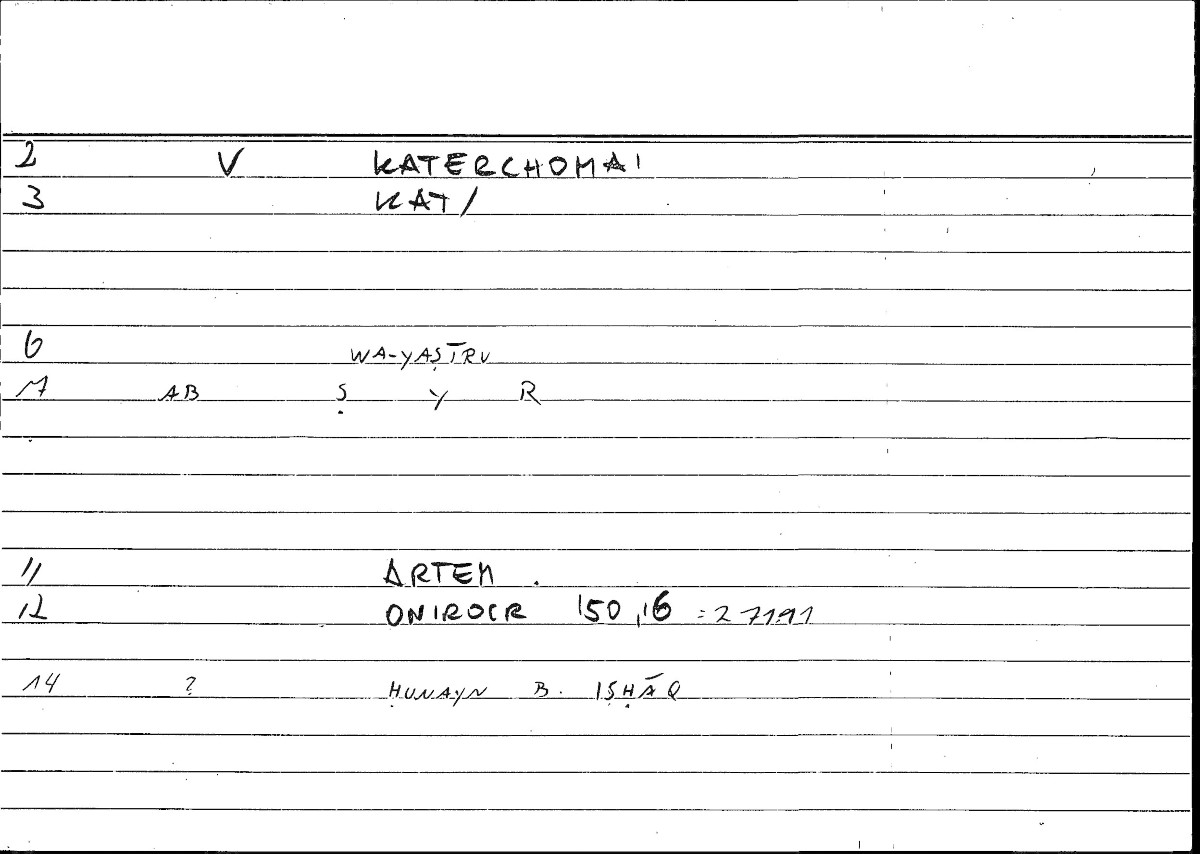 2 V KATERCHOMAI
3 KAT/
6 WA-YAṢĪRU
7 AB Ṣ Y R
11 ARTEM .
12 ONIROCR 150,16 = 271,91
14 ? ḤUNAYN B. ISḤĀQ